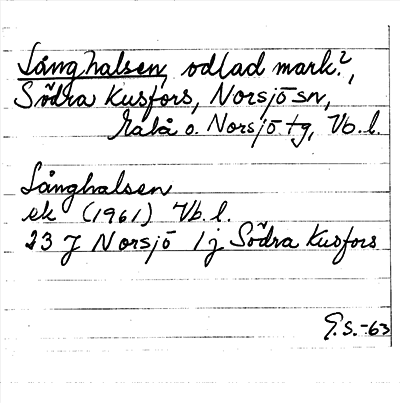 Långhalsen, odlad mark?,
Södra Kusfors, Norsjö sn,
Malå o. Norsjö tg, Vb. l.
Långhalsen
ek (1961) Vb. l.
23 J Norsjö 1 j Södra Kusfors
G.S.-63